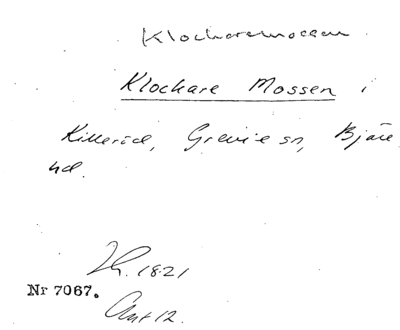 Klockaremossen
Klockare Mossen i
Killeröd, Grevie sn, Bjäre
hd.
Th. 1821
Nr 7067.
Ant 12.